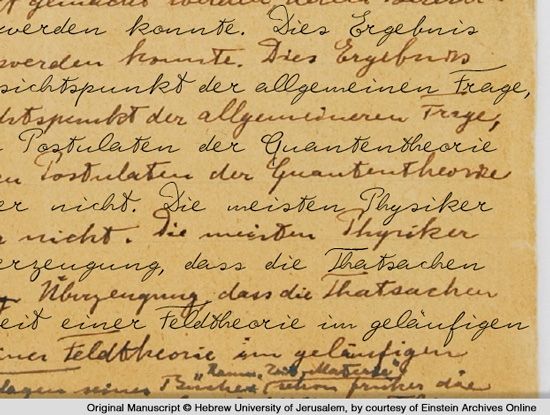 gemacht
werden konnte. Dies Ergebnis
werden konnte. Dies Ergebnis
sichtspunkt der allgemeinen Frage,
chtspunkt der allgemeineren Frage,
n Postulaten der Quantentheorie
en Postulaten der Quantentheorie
er nicht. Die meisten Physiker
r nicht. Die meisten Physiker
erzeugung, dass die Thatsachen
Überzeugung, dass die Thatsachen
eit einer Feldtheorie im geläufigen
einer Feldtheorie im geläufigen
„Raum, Zeit, Materie"
lagen seines Buches schon früher die
Original Manuscript © Hebrew University of Jerusalem, by courtesy of Einstein Archives Online